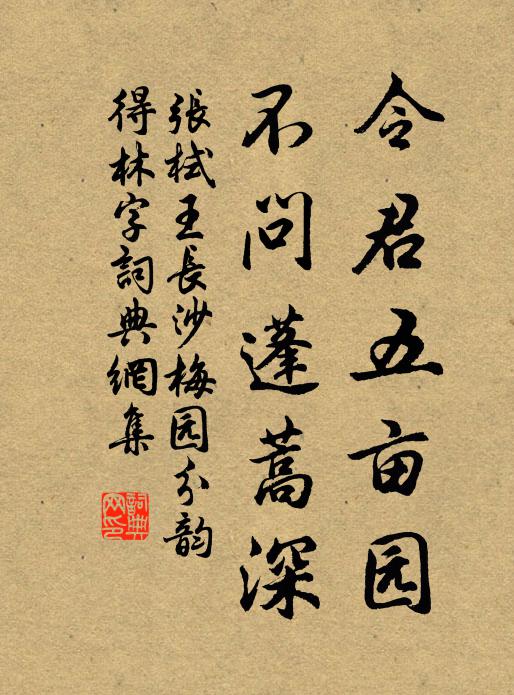 令君五亩园
不问蓬蒿深
張栻王長沙梅园分韵
得林字詞典網集
詞典网印